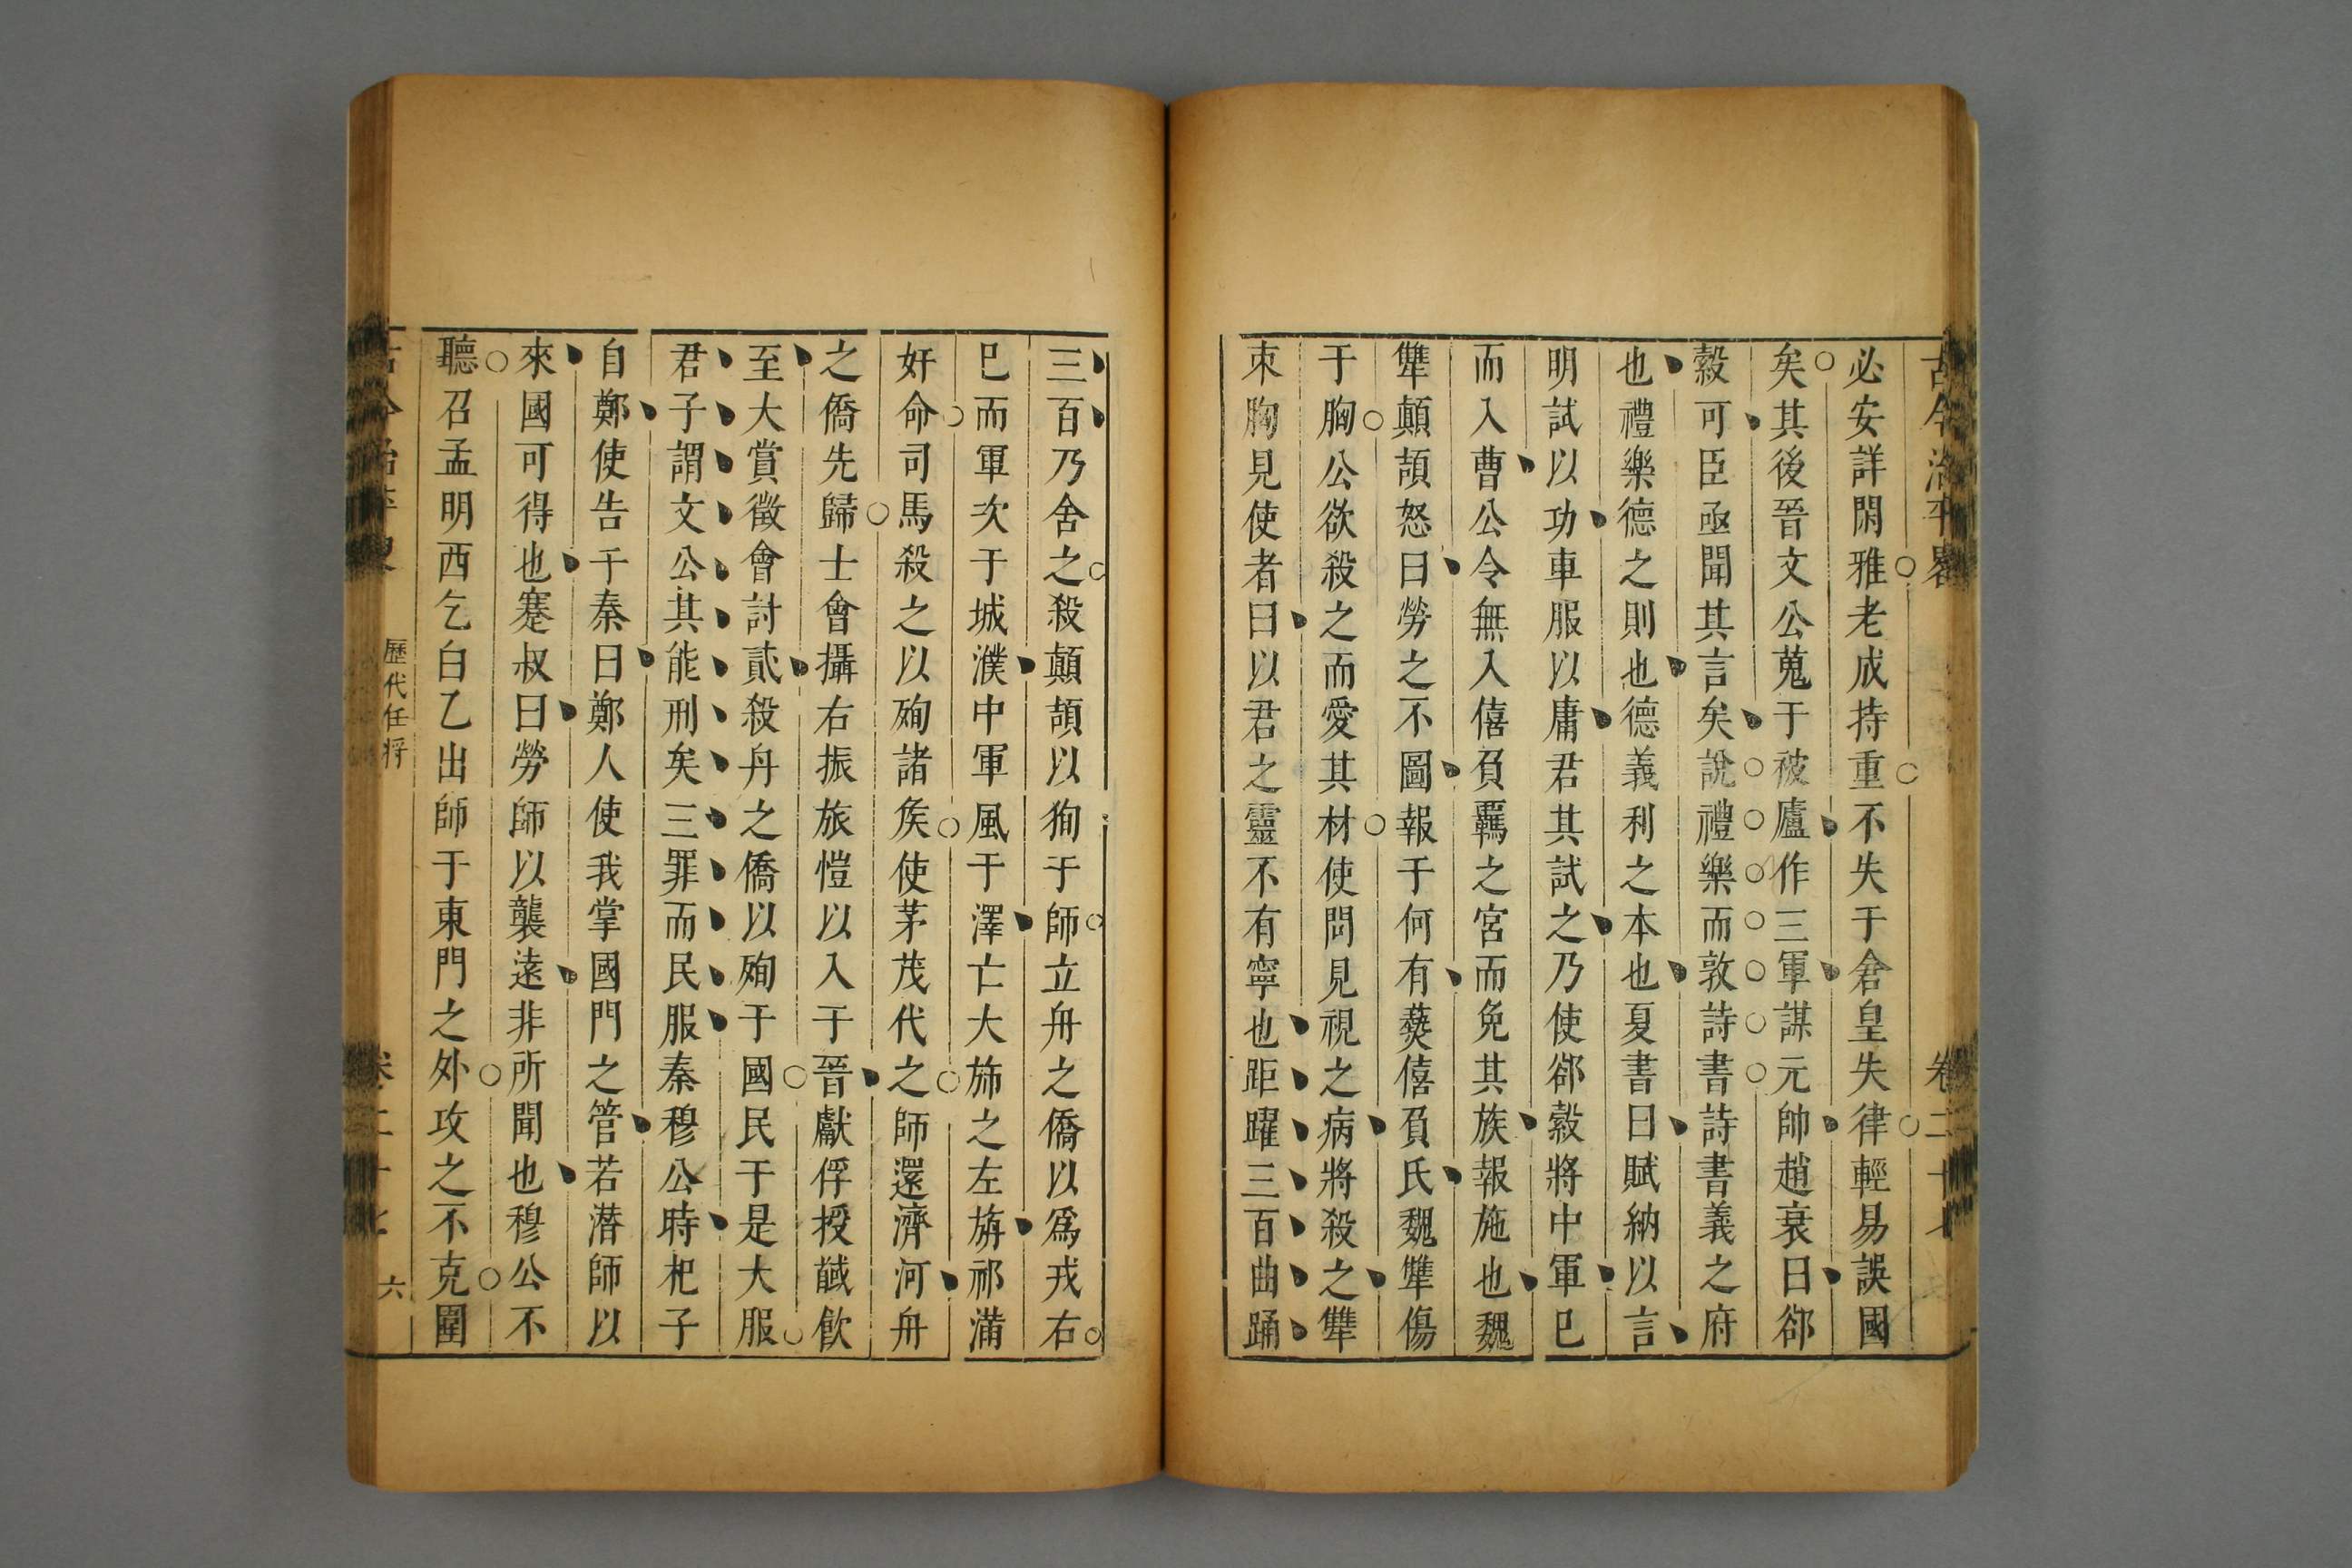 古今治平畧 卷二十七
必安詳閑雅老成持重不失于倉皇失律輕易誤國
矣其後晉文公蒐于被廬作三軍謀元帥趙衰曰郤
縠可臣亟聞其言矣說禮樂而敦詩書詩書義之府
也禮樂德之則也德義利之本也夏書曰賦納以言
明試以功車服以庸君其試之乃使郤縠將中軍已
而入曹公令無入僖負羈之宮而免其族報施也魏
犨顛頡怒曰勞之不圖報于何有爇僖負氏魏犨傷
于胸公欲殺之而愛其材使問見視之病將殺之犨
束胸見使者曰以君之靈不有寧也距躍三百曲踊
三百乃舍之殺顛頡以狥于師立舟之僑以為戎右
已而軍次于城濮中軍風于澤亡大斾之左旃祁滿
奸命司馬殺之以殉諸矦使茅茂代之師還濟河舟
之僑先歸士會攝右振旅愷以入于晉獻俘授馘飲
至大賞徵會討貳殺舟之僑以殉于國民于是大服
君子謂文公其能刑矣三罪而民服秦穆公時杞子
自鄭使告于秦曰鄭人使我掌國門之管若潛師以
來國可得也蹇叔曰勞師以襲遠非所聞也穆公不
聽召孟明西乞白乙出師于東門之外攻之不克圍
古今治平畧 歷代任將 卷二十七 六